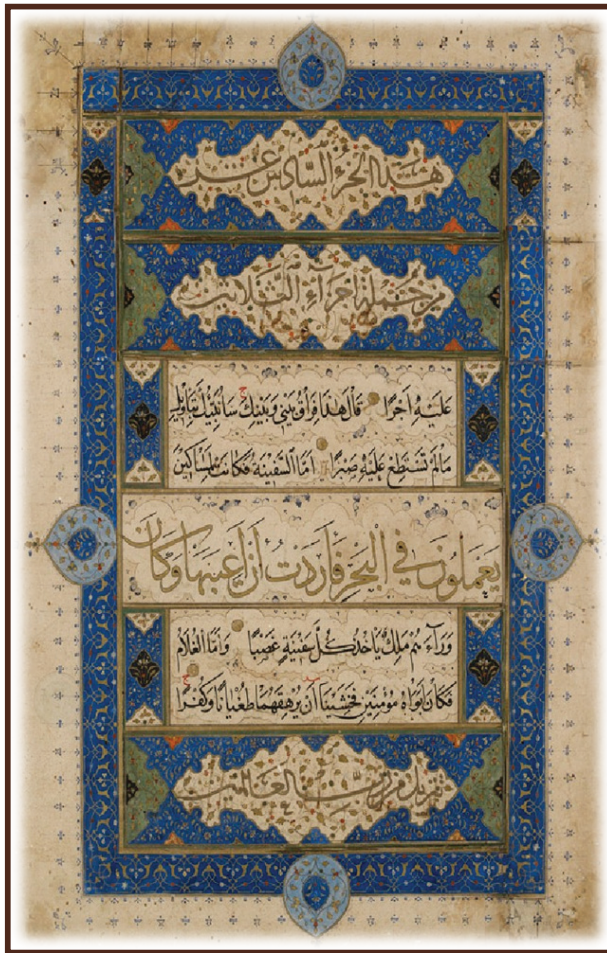 هذا الجزء السّادس عشر
من جملة اجزآء الثلاثين
عَلَيْهِ اَجْرًا قَالَ هٰذَا فِرَاقُ بَيْنِي وَبَيْنِكَ سَاُنَبِّئُكَ بِتَاْوِيلِ
مَالَمْ تَسْتَطِعْ عَلَيْهِ صَبْرًا اَمَّا السَّفِينَةُ فَكَانَتْ لِمَسَاكِينَ
يَعْمَلُونَ فِي الْبَحْرِ فَاَرَدْتُ اَنْ اَعِيبَهَا وَكَانَ
وَرَآءَهُمْ مَلِكٌ يَاْخُذُ كُلَّ سَفِينَةٍ غَصْبًا وَاَمَّا الْغُلَامُ
فَكَانَ اَبَوَاهُ مُؤْمِنَيْنِ فَخَشِينَا اَنْ يُرْهِقَهُمَا طُغْيَانًا وَكُفْرًا
تنزيل من ربّ العالمين